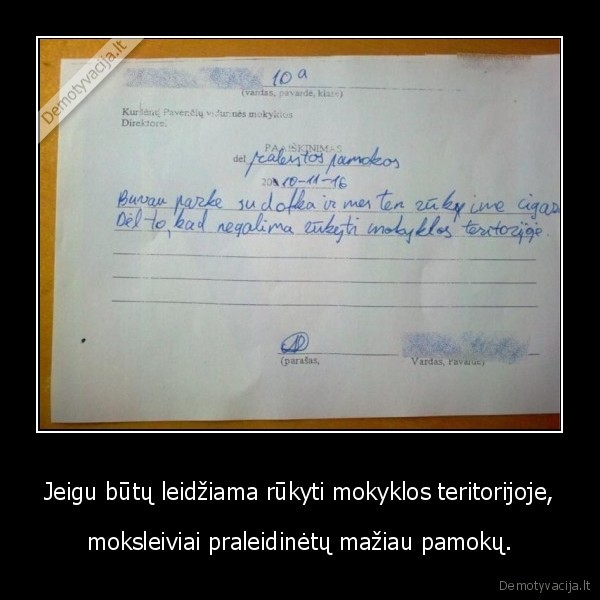 Demotyvacija.lt
10a
(vardas, pavardė, klasė)
Kuršėnų Pavenčių vidurinės mokyklos
Direktorei.
PAAIŠKINIMAS
dėl praleistos pamokos
2010-11-16
Buvau parke su dofka ir mes ten rūkėjme cigar
Dėl to, kad negalima rūkyti mokyklos teritorijoje.
(parašas,
Vardas, Pavardė)
Jeigu būtų leidžiama rūkyti mokyklos teritorijoje,
moksleiviai praleidinėtų mažiau pamokų.
Demotyvacija.lt